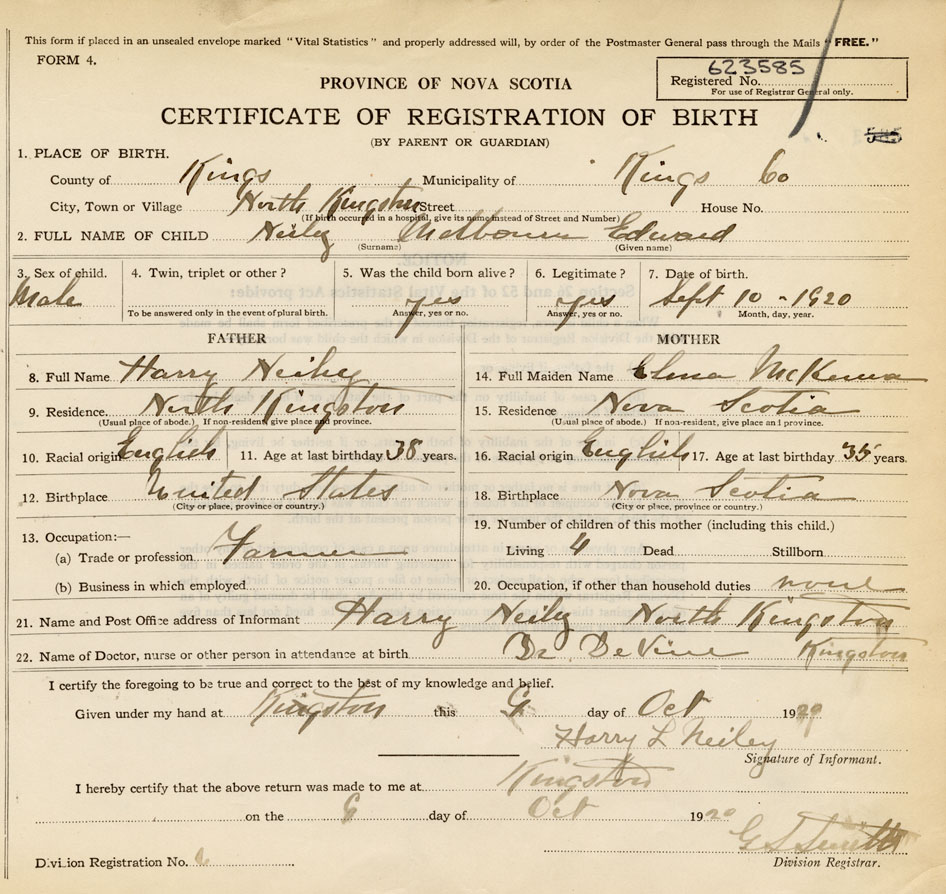 This form if placed in an unsealed envelope marked "Vital Statistics" and properly addressed will, by order of the Postmaster General pass through the Mails "FREE."
FORM 4.
623585
Registered No.
For use of Registrar General only.
PROVINCE OF NOVA SCOTIA
CERTIFICATE OF REGISTRATION OF BIRTH
(BY PARENT OR GUARDIAN)
1. PLACE OF BIRTH.
County of Kings Municipality of Kings Co
City, Town or Village North Kingston Street House No.
(If birth occurred in a hospital, give its name instead of Street and Number)
2. FULL NAME OF CHILD Neiley Melbourn Edward
(Surname) (Given name)
3. Sex of child. 4. Twin, triplet or other? 5. Was the child born alive? 6. Legitimate? 7. Date of birth.
Male yes yes Sept 10 - 1920
To be answered only in the event of plural birth. Answer, yes or no. Answer, yes or no. Month, day, year.
FATHER MOTHER
8. Full Name Harry Neiley 14. Full Maiden Name McKenna
9. Residence North Kingston 15. Residence Nova Scotia
(Usual place of abode.) If non-resident, give place and province. (Usual place of abode.) If non-resident, give place and province.
10. Racial origin English 11. Age at last birthday 38 years. 16. Racial origin English 17. Age at last birthday 35 years.
12. Birthplace United States 18. Birthplace Nova Scotia
(City or place, province or country.) (City or place, province or country.)
13. Occupation:— 19. Number of children of this mother (including this child.)
(a) Trade or profession Farmer Living 4 Dead Stillborn
(b) Business in which employed 20. Occupation, if other than household duties none
21. Name and Post Office address of Informant Harry Neily North Kingston
22. Name of Doctor, nurse or other person in attendance at birth Dr DeVine Kingston
I certify the foregoing to be true and correct to the best of my knowledge and belief.
Given under my hand at Kingston this day of Oct 1920
Harry L Neiley
Signature of Informant.
I hereby certify that the above return was made to me at Kingston
on the day of Oct 1920
G S Smith
Division Registration No. Division Registrar.